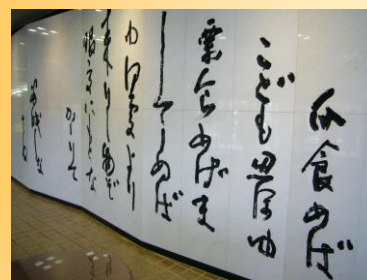 瓜食めば
こども思ほゆ
栗食めばま
してしぬば
ゆいづくより
来りし物ぞ
眼交にもとな
かゝりて
安眠しな
さぬ